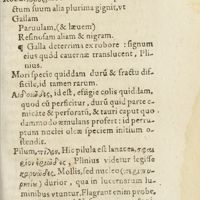 ctum suum alia plurima gignit, vt
Gallam
Paruulam, (& læuem)
Resinosam aliam & nigram.
¶ Galla deterrima ex robore : signum
eius quòd cauernæ translucent, Pli-
nius.
Mori specie quiddam durū & fractu dif-
ficile, id tamen rarum.
id est, effigie colis quiddam,
quod cū perficitur, durū quid parte e-
minicâte & perforatū, & tauri caput quo
dammodo æmulans profert : id peruu-
ptum nucleū oleæ speciem intitium o-
stendit.
Pilum, Hic pilula est lanata,
Plinius videtur legisse
Mollis, sed nucleo
durior, qua in lucernarum lu-
minibus vtuntur. Flagrant enim probe,